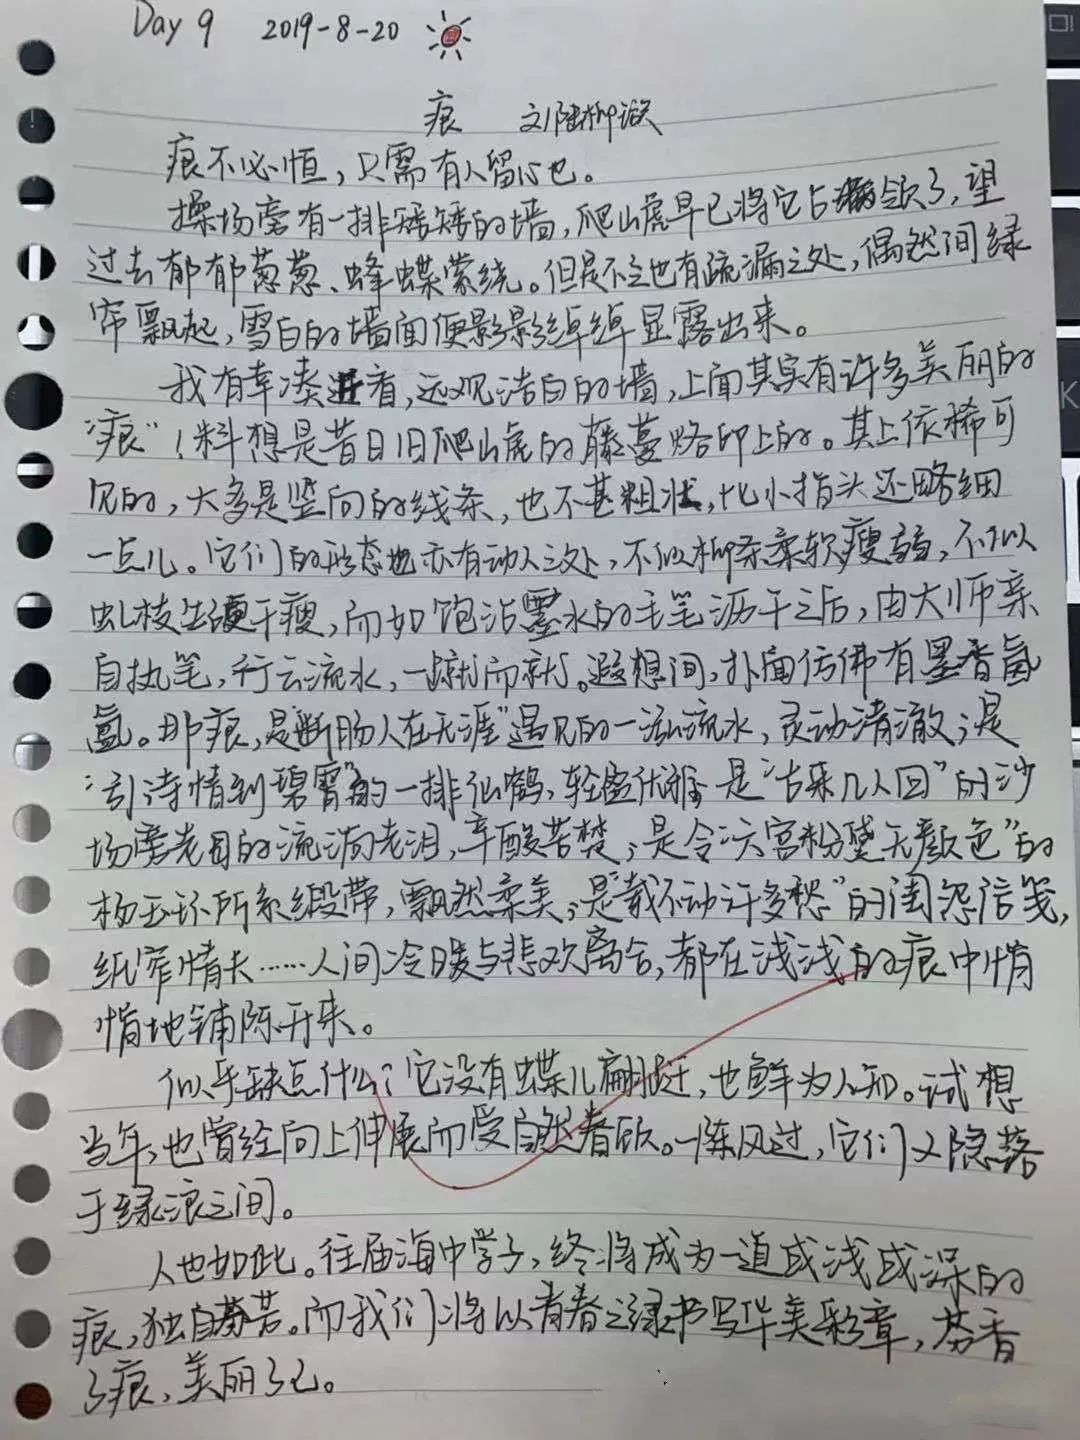 Day 9 2019-8-20
痕 刘陆柳
痕不必恒，只需有人留心也。
操场旁有一排矮矮的墙，爬山虎早已将它占领了，望
过去郁郁葱葱、蜂蝶萦绕。但是不之也有疏漏之处，偶然间绿
帘飘起，雪白的墙面便影影绰绰显露出来。
我有幸凑近看，远观洁白的墙，上面其实有许多美丽的
"痕"！料想是昔日旧爬山虎的藤蔓烙印上的。其上依稀可
见的，大多是竖向的线条，也不甚粗壮，比小指头还略细
一点儿。它们的形态也亦有动人之处，不似柳条柔软瘦弱，不似
虬枝生硬干瘦，而如饱沾墨水的毛笔沥干之后，由大师亲
自执笔，行云流水，一蹴而就。遐想间，扑面仿佛有墨香氤
氲。那痕，是"断肠人在天涯"遇见的一泓流水，灵动清澈；是
"引诗情到碧霄"的一排仙鹤，轻盈优雅；是"古来几人回"的沙
场旁老者的流淌老泪，辛酸苦楚；是令"六宫粉黛无颜色"的
杨玉环所系缎带，飘然柔美；是"载不动许多愁"的闺怨信笺，
纸窄情长……人间冷暖与悲欢离合，都在浅浅的痕中悄
悄地铺陈开来。
似乎缺点什么？它没有蝶儿翩跹，也鲜为人知。试想
当年，也曾经向上伸展而受自然眷顾。一阵风过，它们又隐落
于绿浪之间。
人也如此。往届海中学子，终将成为一道或浅或深的
痕，独自芬芳。而我们将以青春之绿书写华美彩章，芬香
了痕，美丽了己。